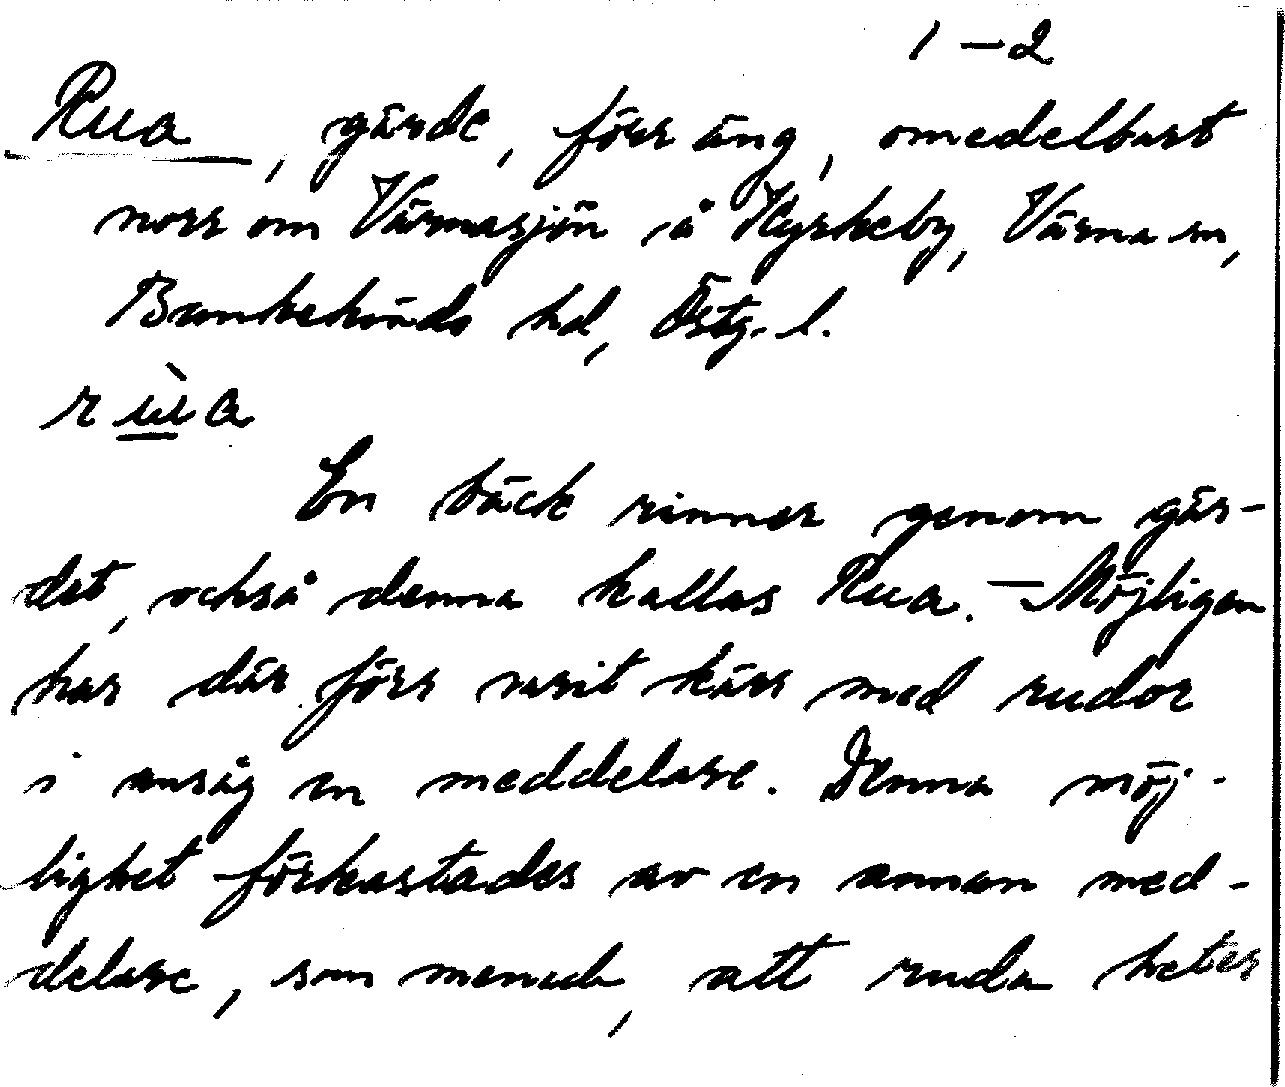 1–2
Rua, gärde, förr äng, omedelbart
norr om Värmasjön å Kyrkeby, Värna sn,
Bankekinds hd, Östg. l.
rùa
En bäck rinner genom gär-
det, också denna kallas Rua. – Möjligen
har där förr varit kärr med rudor
i ansåg en meddelare. Denna möj-
lighet förkastades av en annan med-
delare, som menade, att ruda heter